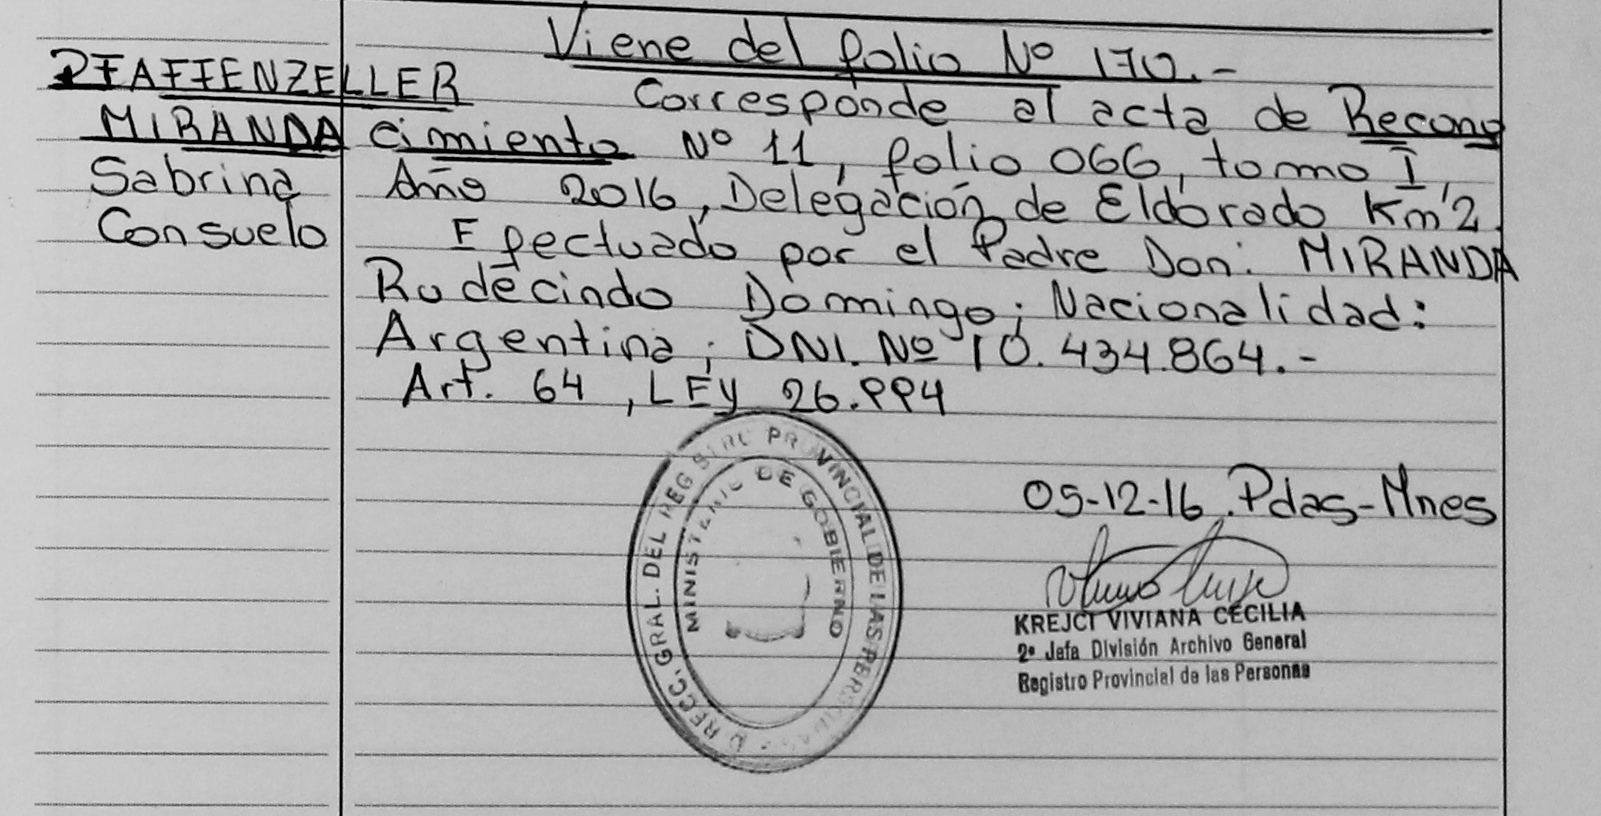 Viene del folio Nº 170.-
PFAFFENZELLER
MIRANDA
Sabrina
Consuelo
Corresponde al acta de Recono
cimiento Nº 11, folio 066, tomo I,
Año 2016, Delegación de Eldorado Km 2.
Efectuado por el Padre Don: MIRANDA
Rudecindo Domingo; Nacionalidad:
Argentina; DNI. Nº 10.434.864.-
Art. 64, LEY 26.994
05-12-16. Pdas-Mnes
DIRECC. GRAL. DEL REGISTRO PROVINCIAL DE LAS PERSONAS
MINISTERIO DE GOBIERNO
KREJCI VIVIANA CECILIA
2ª Jefa División Archivo General
Registro Provincial de las Personas